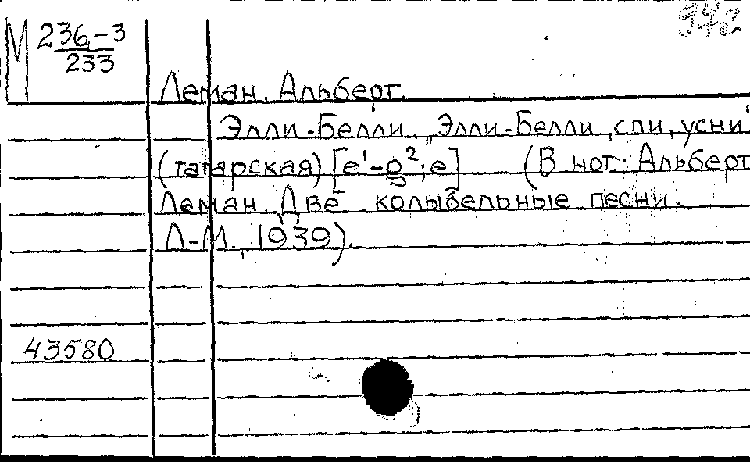 М 236-3
233
Леман Альберт.
Элли-Белли. „Элли-Белли, спи, усни"
(татарская) [e¹-g²; e] (В нот: Альберт
Леман. Две колыбельные песни.
Л-М., 1939).
43580